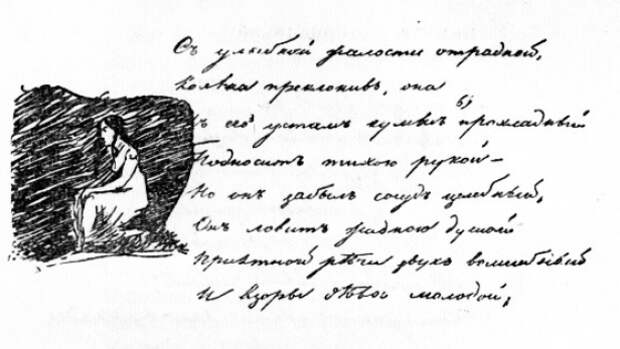 Съ улыбкой жалости отрадной,
Колѣна преклонивъ, она
Къ его устамъ кумысъ 6) прохладный
Подноситъ тихою рукой –
Но онъ забылъ сосудъ цѣлебный,
Онъ ловитъ жадною душой
Пріятной рѣчи звукъ волшебный
И взоры дѣвы молодой;